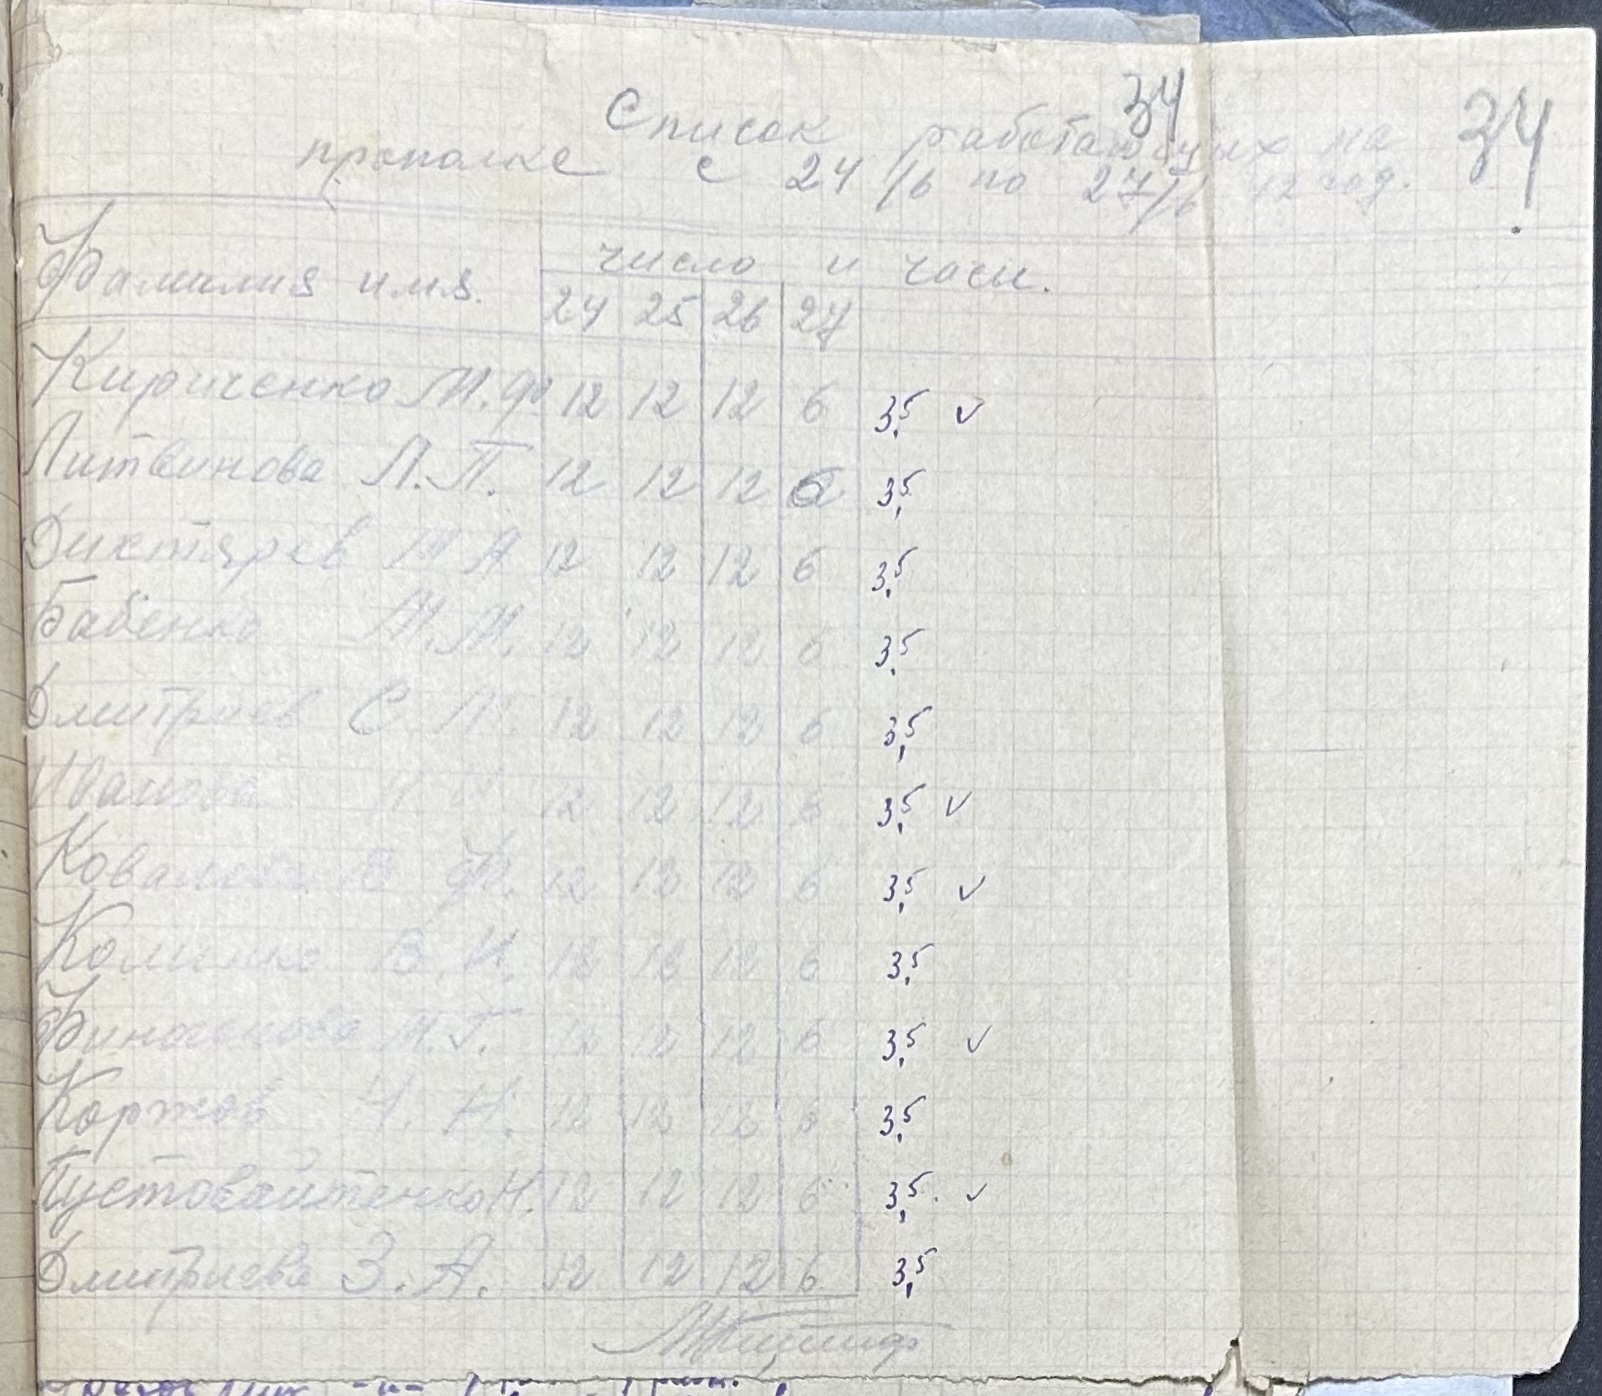 34 34
Список работающих на
прополке с 24/6 по 27/6 42 год.
Фамилия имя. число и часы.
24 25 26 27
Кириченко М.Ф. 12 12 12 6 3,5 ✓
Литвинова Л.П. 12 12 12 6 3,5
Диктярев 12 12 12 6 3,5
Бабенко М.М. 12 12 12 6 3,5
Дмитриев С. 12 12 12 6 3,5
Иванова 12 12 12 6 3,5 ✓
Ковалева В Ф. 12 12 12 6 3,5 ✓
В. Н. 12 12 12 6 3,5
И.Г. 12 12 12 6 3,5 ✓
Коржов Н. 12 12 12 6 3,5
Пустовайтенко Н. 12 12 12 6 3,5. ✓
Дмитриева З. А. 12 12 12 6 3,5